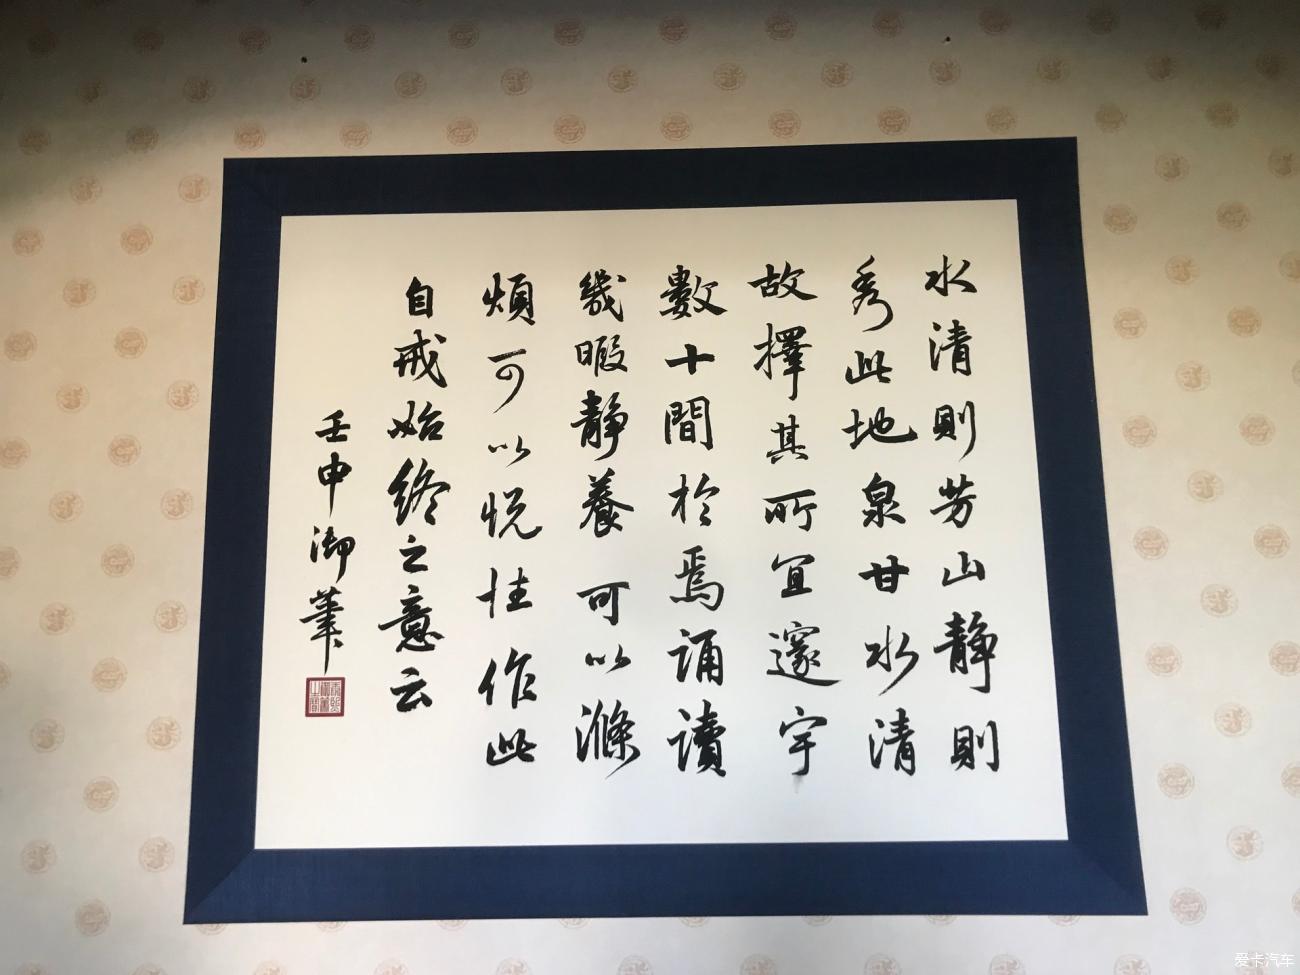 水清則芳山靜則
秀此地泉甘水清
故擇其所宜邃宇
數十間於焉誦讀
幾暇靜養可以滌
煩可以悅性作此
自戒始終之意云
壬申御筆
爱卡汽车